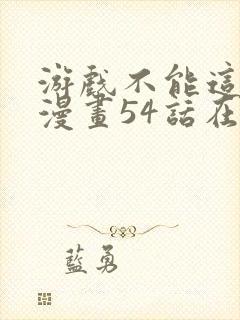 游戲不能這
漫畫54話在
藍勇